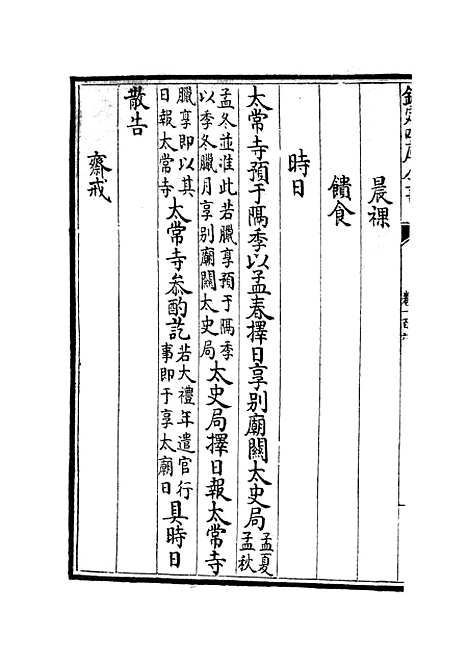 晨祼
饋食
時日
太常寺預于隔季以孟春擇日享别廟關太史局孟夏孟秋
孟冬並准此若臘享預于隔季以季冬臘月享别廟關太史局太史局擇日報太常寺
臘享即以其日報太常寺太常寺叅酌訖若大禮年遣官行事即于享太廟日具時日
散告
齋戒